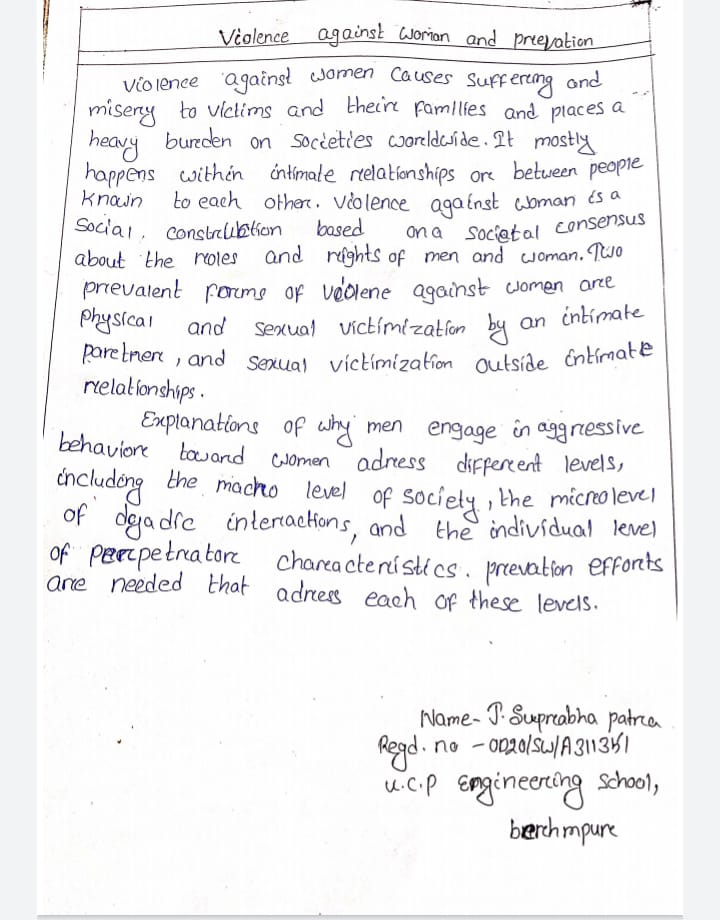 Violence against Woman and prevation
Violence against women Causes Suffering and
misery to victims and their families and places a
heavy burden on Societies worldwide. It mostly
happens within intimate relationships or between people
Known to each other. Violence against woman is a
Social, construction based on a Societal consensus
about the roles and rights of men and woman. Two
prevalent forms of violene against women are
Physical and sexual victimization by an intimate
partner, and sexual victimization outside intimate
relationships.
Explanations of why men engage in aggressive
behavior toward women adress different levels,
including the macro level of society, the micro level
of dyadic interactions, and the individual level
of perpetrator characteristics. prevation efforts
are needed that adress each of these levels.
Name- J. Suprabha patra
Regd. no - OD20/SW/A311351
U.C.P Engineering School,
berhmpur